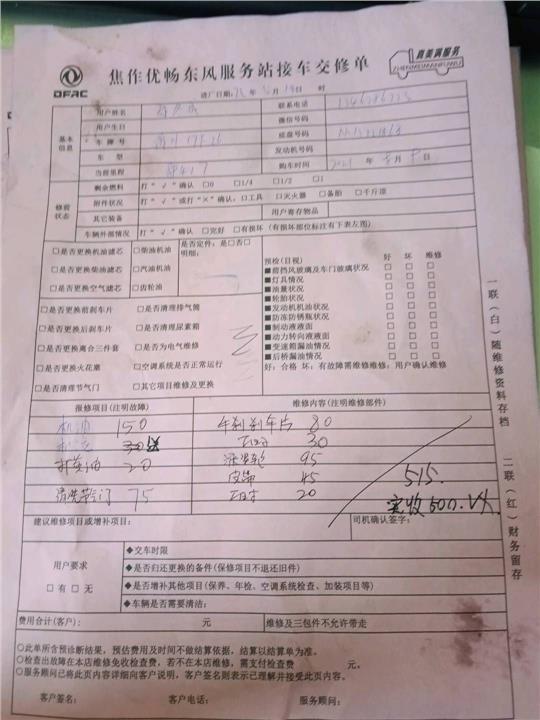 DFAC
焦作优畅东风服务站接车交修单
喜美满服务
ZHENMEIMANFUWU
进厂日期: 年 月 日 时
基本信息
用户姓名
联系电话
用户生日
微信号码
车牌号
底盘号码
车型
发动机号码
当前里程
购车时间 年 月 日
修前状态
剩余燃料 打“√”确认 □0 □1/4 □1/2 □1
附件状况 打“√”或打“×”确认:□工具 □灭火器 □备胎 □千斤顶
其它装备 用户寄存物品
车辆外部情况 打“√”确认 □完好 □有损坏 (有损坏部位标注有下表左图)
□是否更换机油滤芯 □柴油机油
□是否更换柴油滤芯 □汽油机油
□是否更换空气滤芯 □齿轮油
是否定件:是□否□
明细:
□是否更换前刹车片 □是否清理排气筒
□是否更换后刹车片 □是否清理尿素箱
□是否更换离合三件套 □是否为电气维修
□是否更换火花塞 □空调系统是否正常运行
□是否清理节气门 □其它项目维修及更换
预检(目视) 好 坏 维修
■前挡风玻璃及车门玻璃状况 □ □ □
■灯具情况 □ □ □
■油量状况 □ □ □
■轮胎状况 □ □ □
■发动机机油状况 □ □ □
■防冻防锈瓶状况 □ □ □
■制动液液面 □ □ □
■动力转向液液面 □ □ □
■变速箱漏油情况 □ □ □
■后桥漏油情况 □ □ □
好:合格 坏:有故障需维修维修:用户确认维修
报修项目(注明故障) 维修内容(注明维修部件)
机油 150 刹车片 80
30
20 95
皮带 45
75 20
515.
实收500.VX
建议维修项目或增补项目: 司机确认签字:
用户要求
□有 □无
◆交车时限
◆是否归还更换的备件(保修项目不退还旧件)
◆是否增补其他项目(保养、年检、空调系统检查、加装项目等)
◆车辆是否需要清洁:
费用合计(客户): 元 维修及三包件不允许带走
○此单所含预诊断结果,预估费用及时间不做结算依据,结算以结算单为准。
○检查出故障在本店维修免收检查费,若不在本店维修,需支付检查费 元。
○服务顾问已将此页内容详细向客户说明,客户签名则表示已理解并接受此页内容。
客户签名: 客户电话: 服务顾问:
一联(白)随维修资料存档
二联(红)财务留存